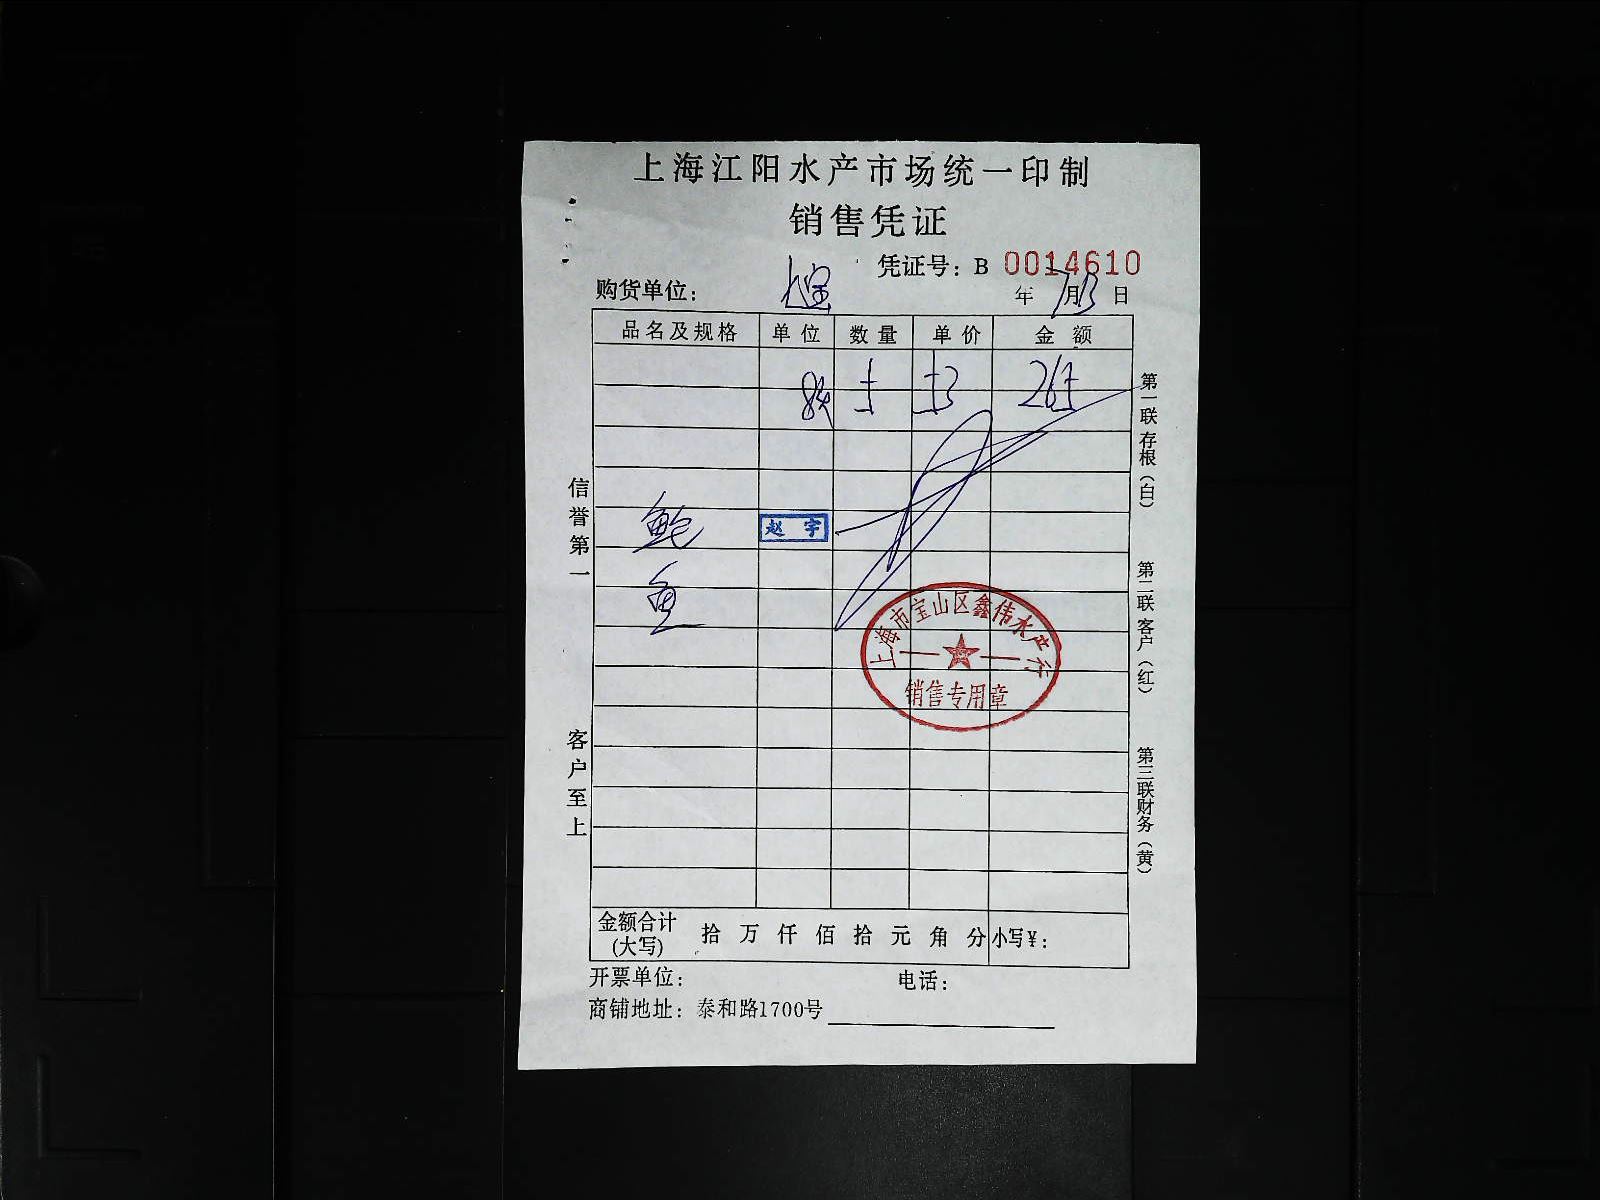 上海江阳水产市场统一印制
销售凭证
凭证号：B 0014610
购货单位：
年 7月13日
品名及规格 单位 数量 单价 金额
5 53 265
鲍
赵宇
鱼
上海市宝山区鑫伟水产行
销售专用章
信誉第一
客户至上
第一联存根（白）
第二联客户（红）
第三联财务（黄）
金额合计
(大写) 拾 万 仟 佰 拾 元 角 分 小写¥：
开票单位： 电话：
商铺地址：泰和路1700号